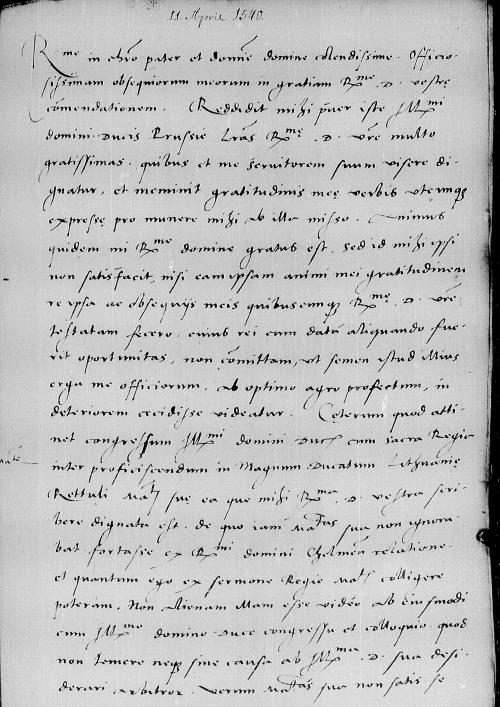 11 Aprilis 1540.
R me in chro pater et domine domine colendissime. Officio-
sissimam obsequiorum meorum in gratiam Rx me . D. vestrę
comendationem. Reddidit mihi puer iste Illmi
domini Ducis Prussie lras Rx mę . D. vre multo
gratissimas. quibus et me servitorem suum visere di-
gnatur, et meminit gratitudinis meę verbis utcumq
expressę pro munere mihi ab illa misso. Animus
quidem mi Rx me domine gratus est, sed id mihi ipsi
non satisfacit, nisi eam ipsam animi mei gratitudinem
re ipsa ac obsequijs meis quibuscumq Rx mę . D. vrę
testatam fecero. cuius rei cum data aliquando fue-
rit oportunitas, non comittam, ut semen istud illius
erga me officiorum, ab optimo agro profectum, in
deteriorem cecidisse videatur. Ceterum quod atti-
net congressum Illmi domini Ducis cum Sacra Regia
Mate
inter proficiscendum in Magnum Ducatum Lithuanię
Rettuli Mati suę ea que mihi Rx ma . D. vestra scri-
bere dignata est. de quo iam Matas sua non ignora-
bat fortasse ex Rx mi domini Chelmen relatione.
et quantum ego ex sermone Regie Matis colligere
poteram, Non alienam illam esse video ab eiusmodi
cum Illmo domino Duce congressu et colloquio. quod
non temere neq sine causa ab Illma . D. sua desi-
derari arbitror. verum Matas sua non satis se